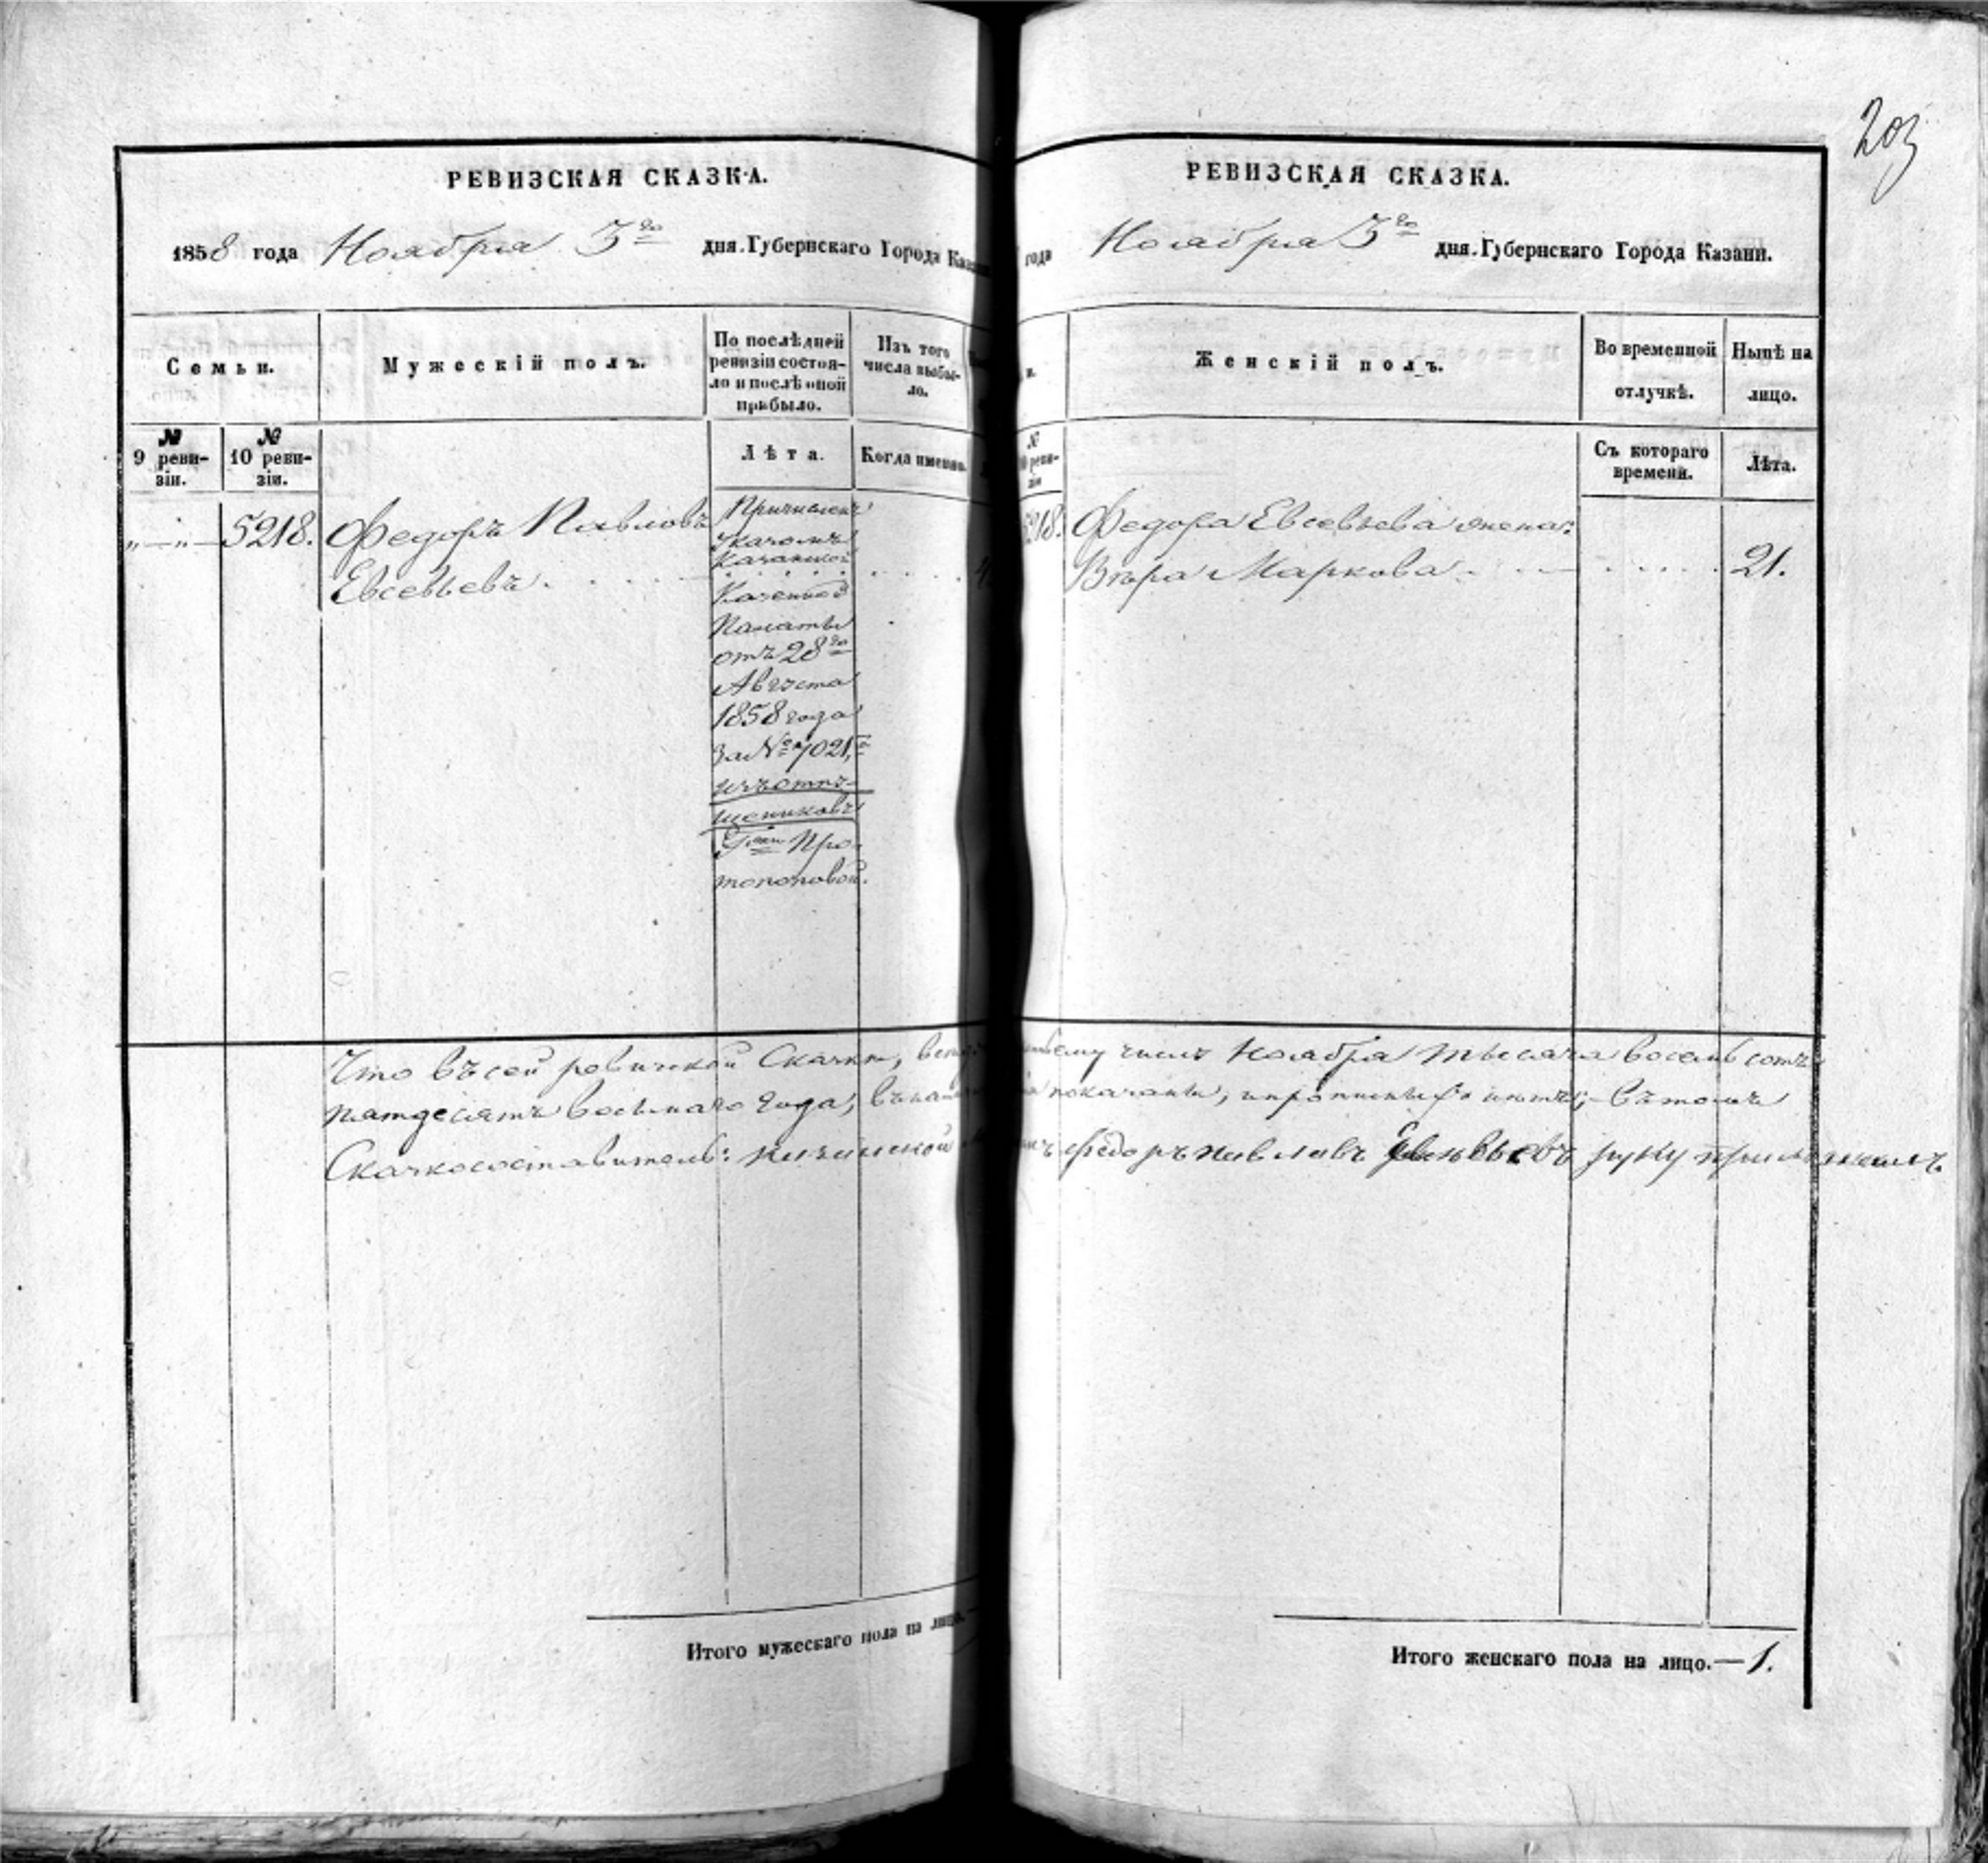 203
РЕВИЗСКАЯ СКАЗКА.
1858 года Ноября 3го дня. Губернскаго Города Казани
Семьи.
Мужескій полъ.
По послѣдней
ревизіи состоя-
ло и послѣ оной
прибыло.
Изъ того
числа выбы-
ло.
№
9 реви-
зіи.
№
10 реви-
зіи.
Лѣта.
Когда именно.
„—„— 5218. Федоръ Павловъ
Евсевьевъ.
Причисленъ
Указомъ
Казанской
Казенной
Палаты
отъ 28го
Августа
1858 года
за № 7021,
изъ отпу-
щениковъ
Гжи Про-
топоповой.
Что въ сей ревизской Сказкѣ,
пятдесятъ восьмаго года,
Сказкосоставитель: казанской
Итого мужескаго пола на лицо.
РЕВИЗСКАЯ СКАЗКА.
года Ноября 3го дня. Губернскаго Города Казани.
Женскій полъ.
Во временной
отлучкѣ.
Нынѣ на
лицо.
№
10 реви-
зіи
Съ котораго
времени.
Лѣта.
5218. Федора Евсевьева жена:
Вѣра Маркова 21.
числу Ноября тысяча восемь сотъ
показаны, и прописныхъ нѣтъ; въ томъ
Федоръ Павловъ Евсевьевъ руку приложилъ
Итого женскаго пола на лицо.—1.